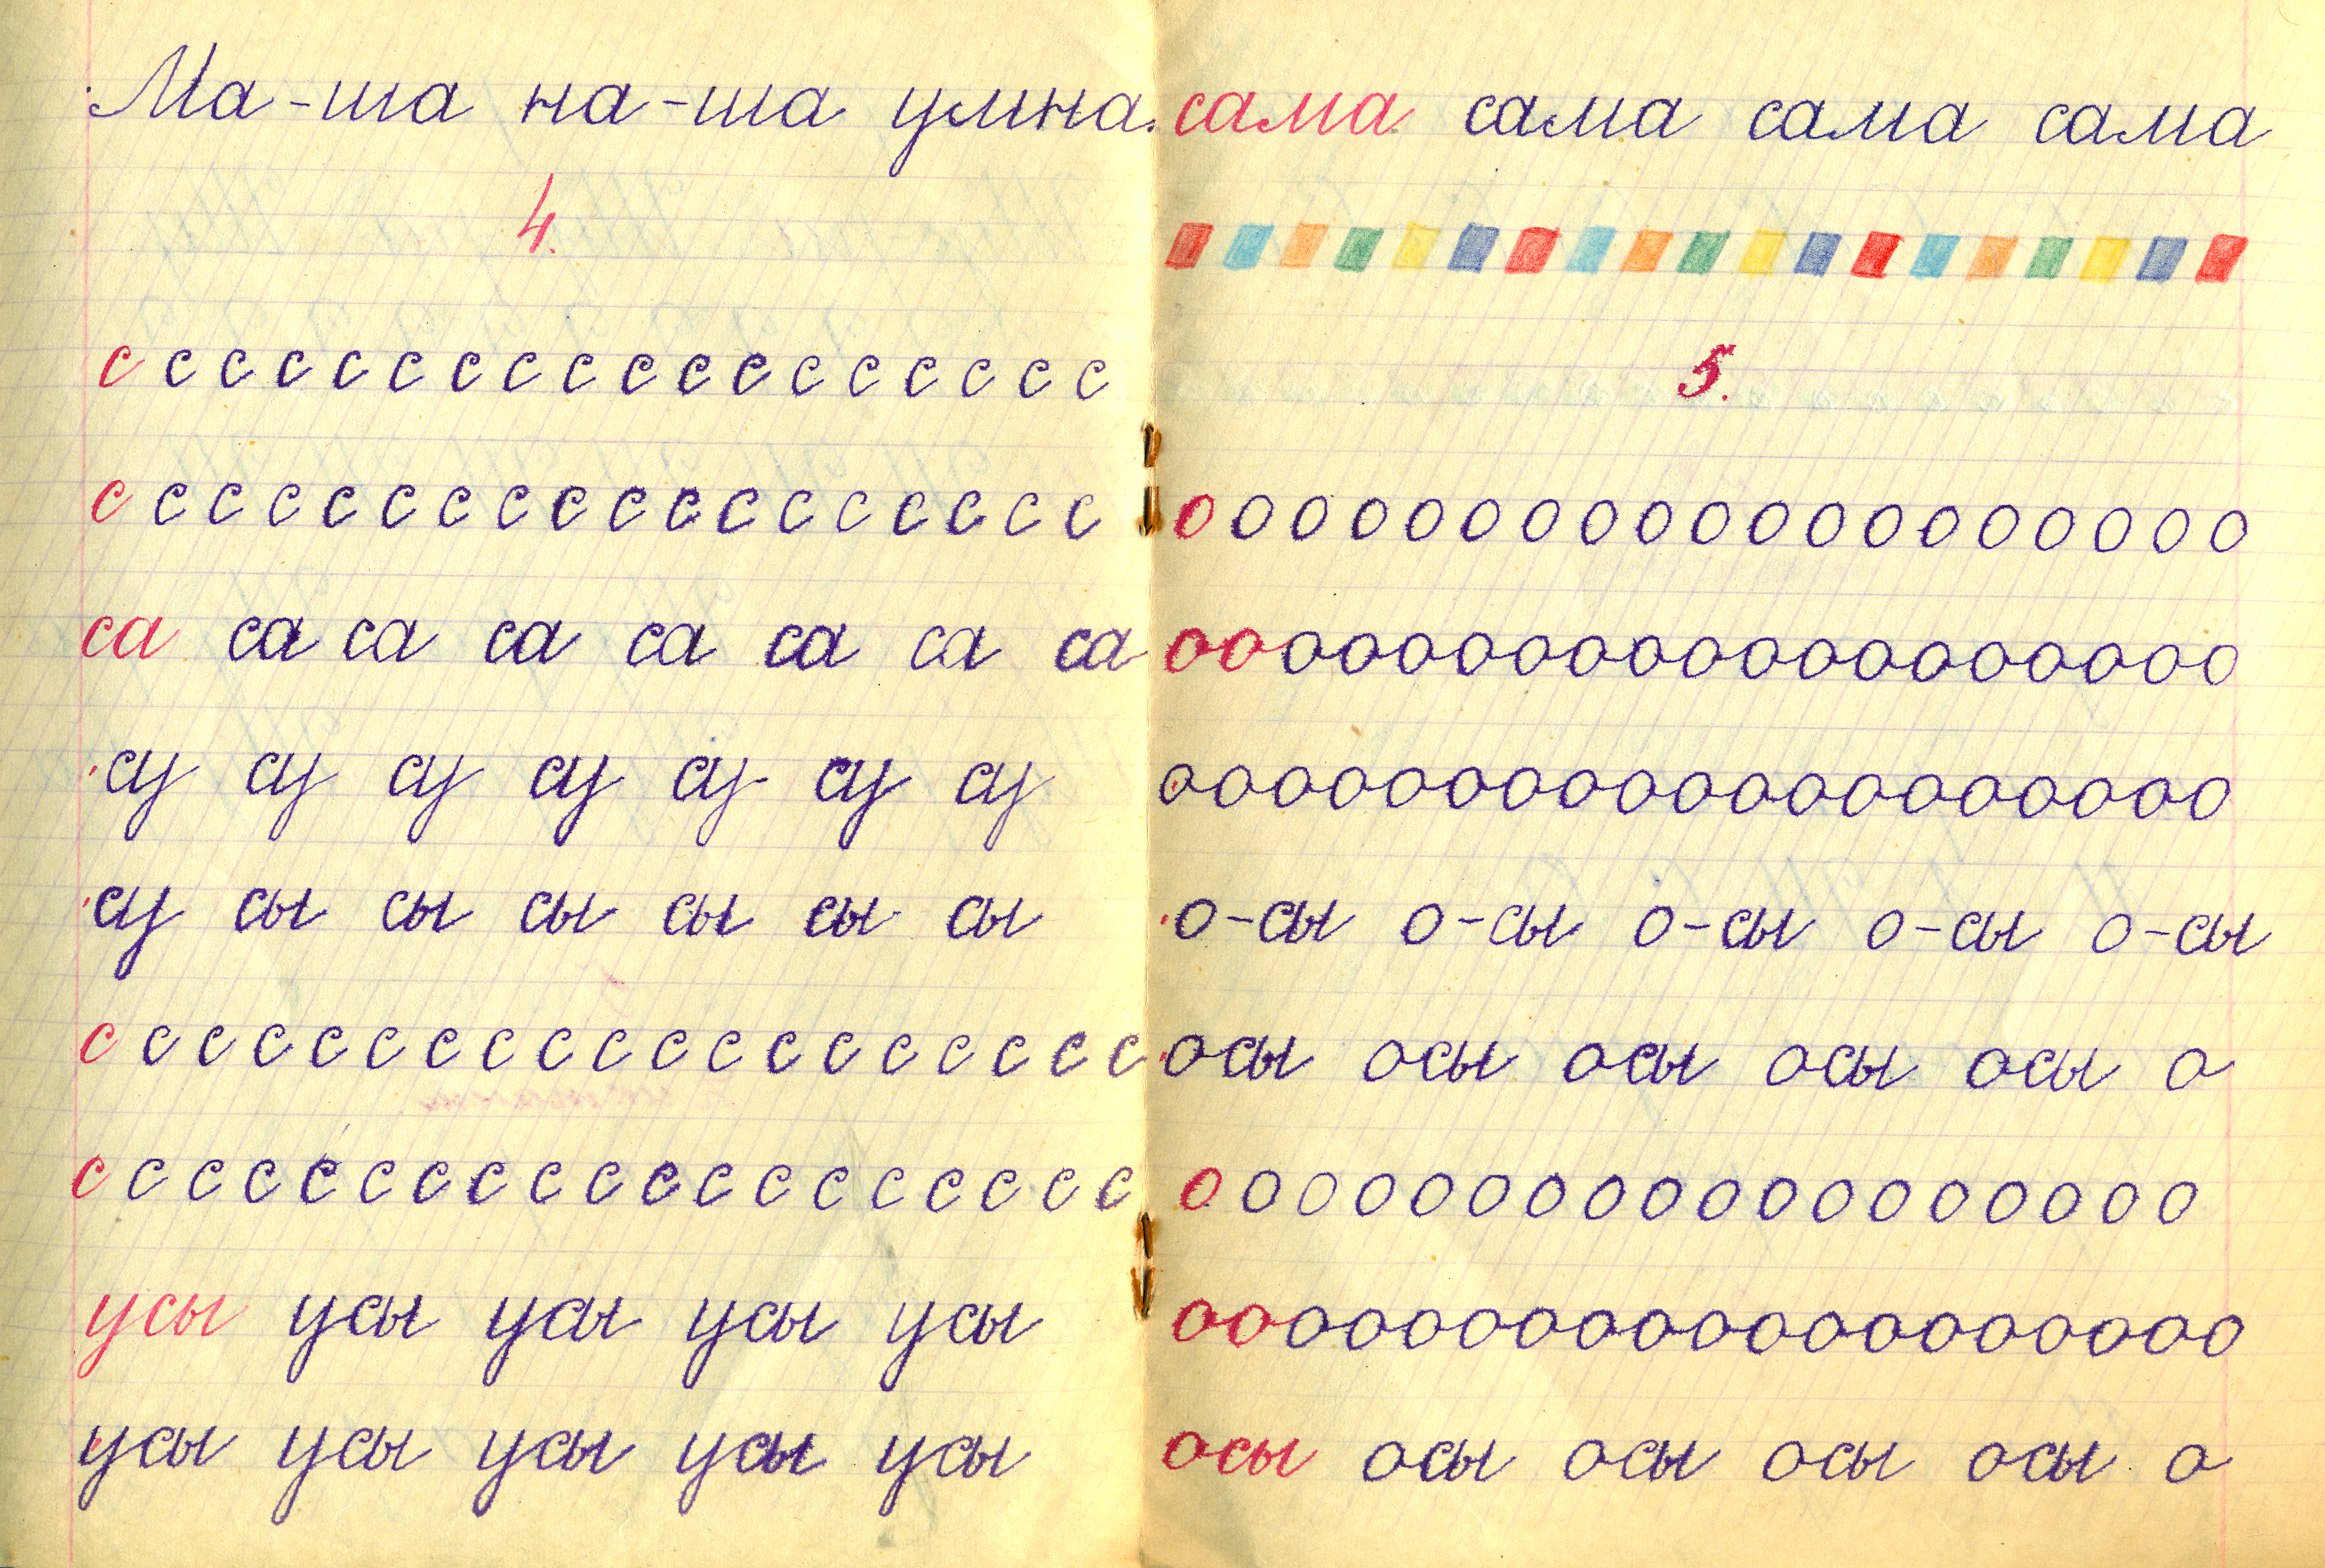 Ма-ша на-ша умна.
4.
с с с с с с с с с с с с с с с с с с
с с с с с с с с с с с с с с с с с с
са са са са са са са са
су су су су су су су
су сы сы сы сы сы сы
с с с с с с с с с с с с с с с с с с с
с с с с с с с с с с с с с с с с с с с
усы усы усы усы усы
усы усы усы усы усы
сама сама сама сама
5.
о о о о о о о о о о о о о о о о о о о
ооооооооооооооооооо
ооооооооооооооооооо
о-сы о-сы о-сы о-сы о-сы
осы осы осы осы осы о
о о о о о о о о о о о о о о о о о о
ооооооооооооооооооо
осы осы осы осы осы о